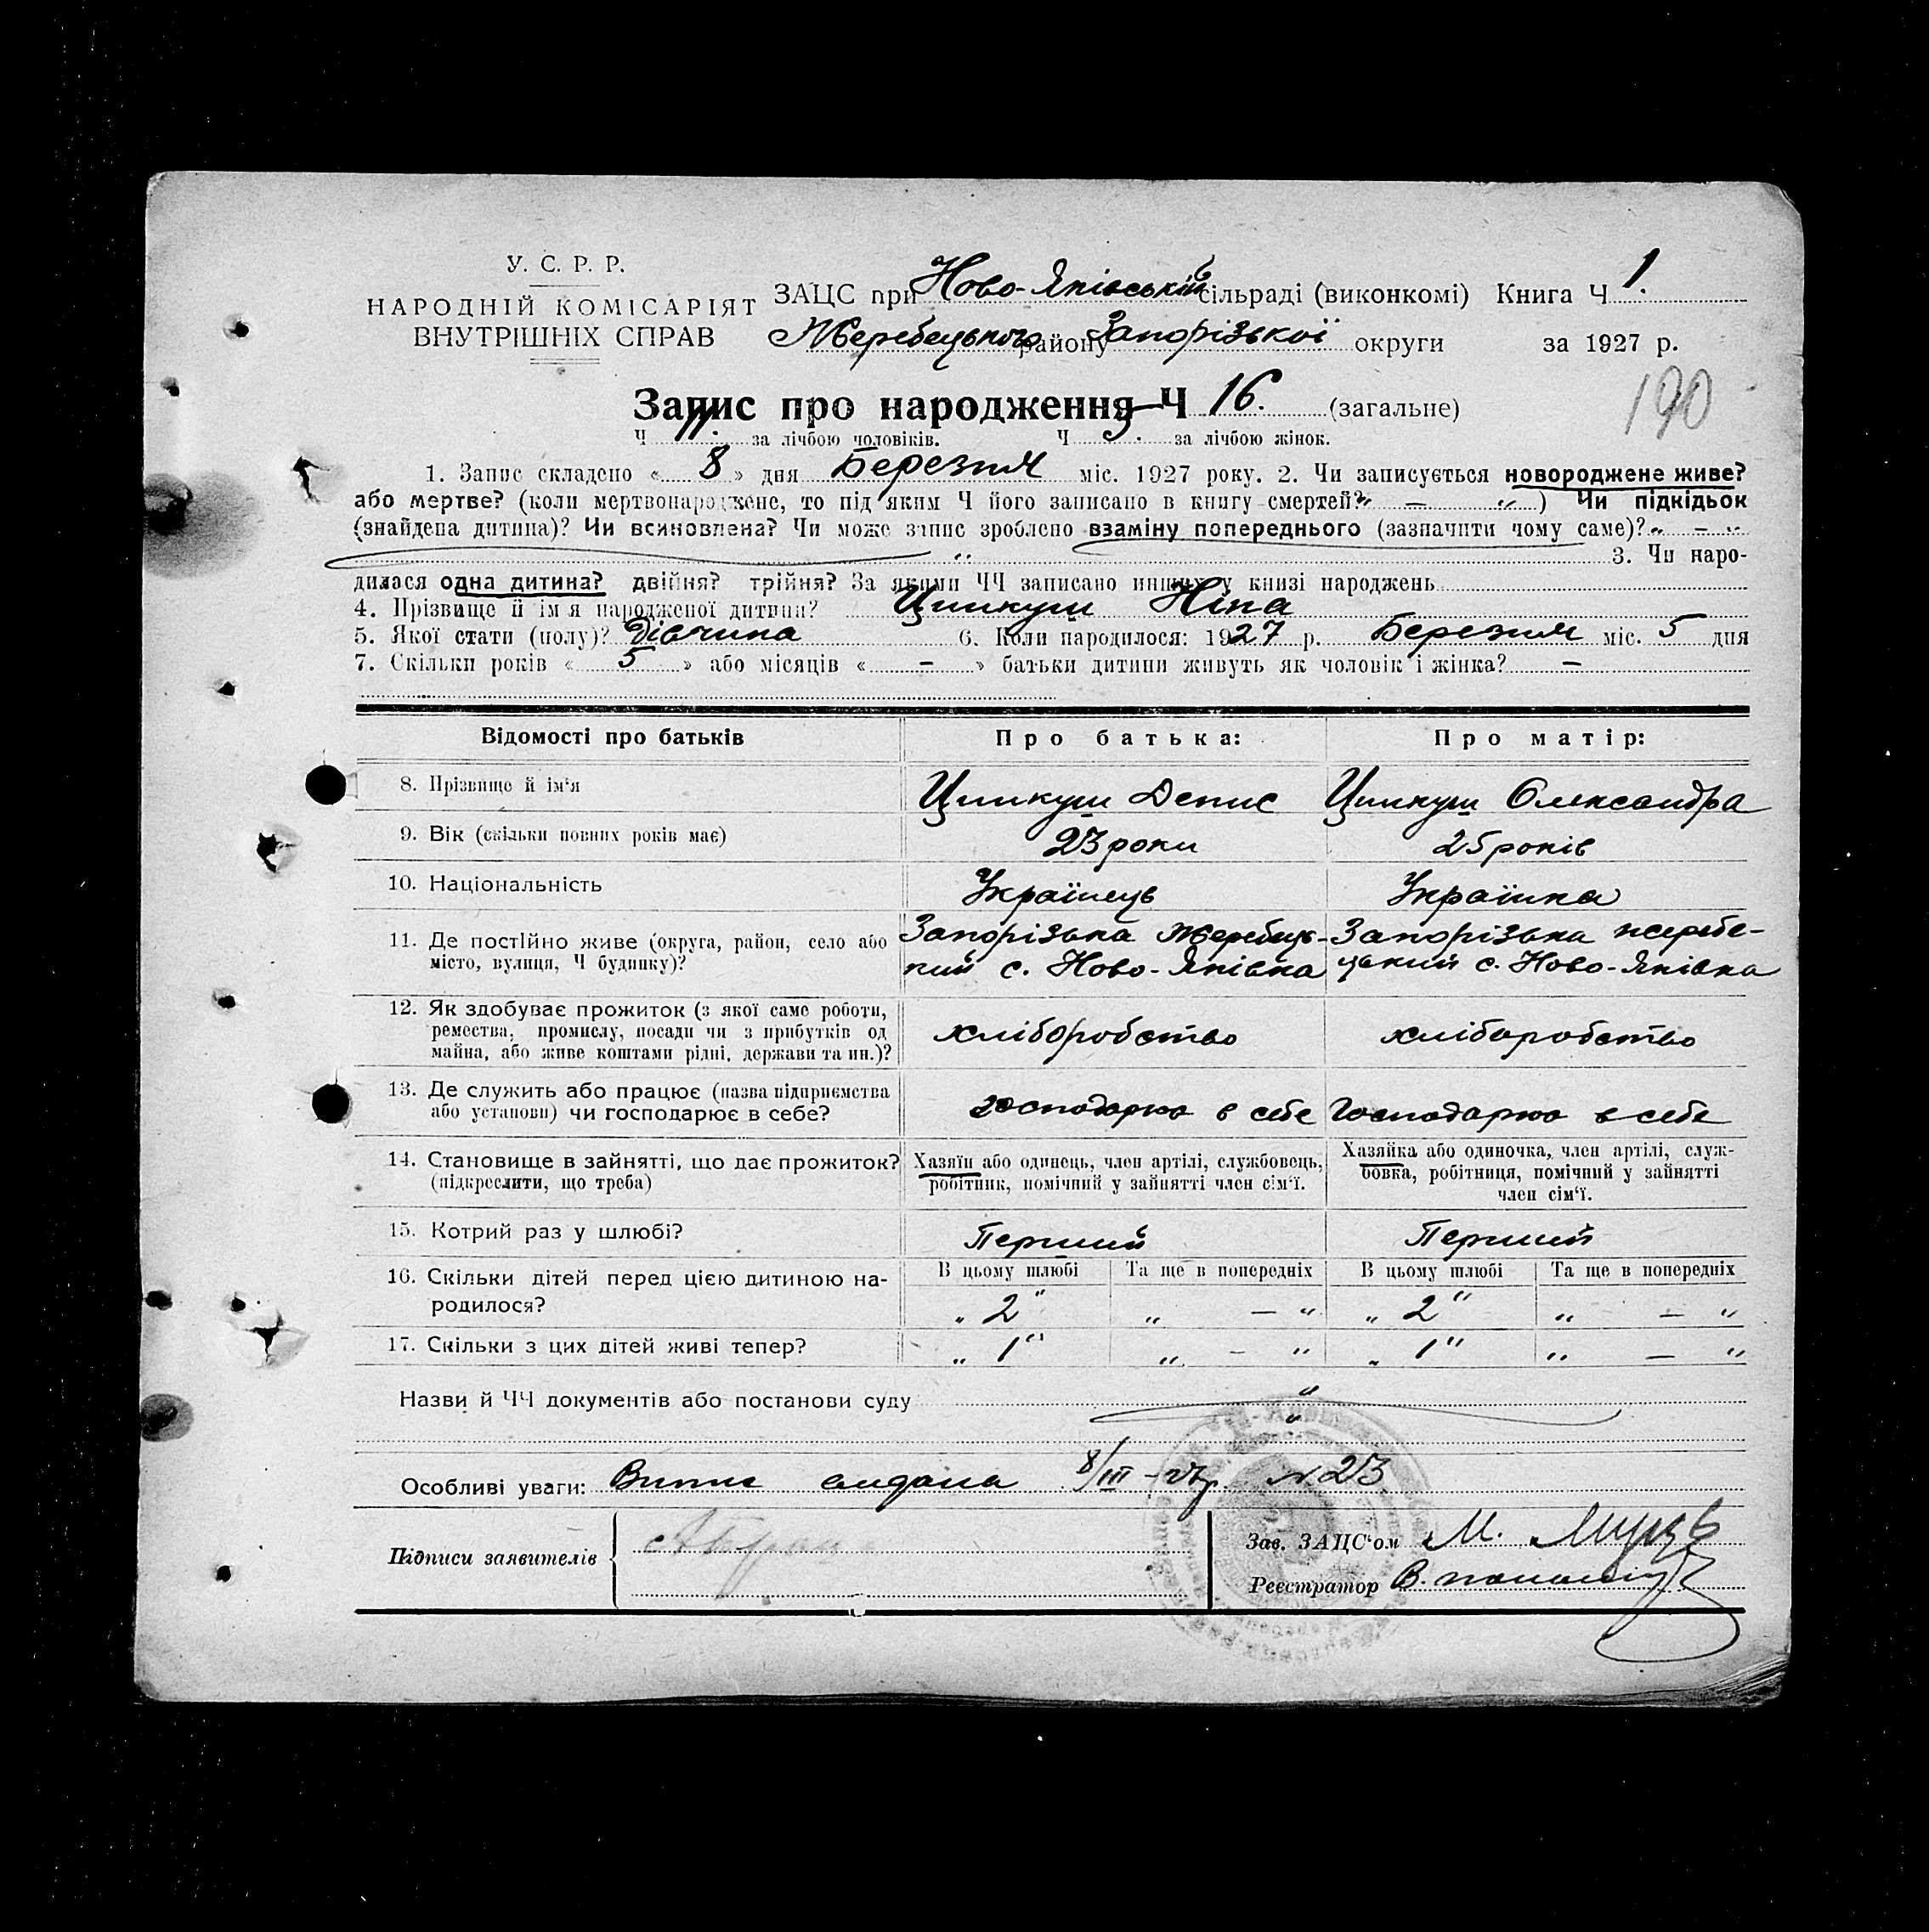 У. С. Р. Р.
НАРОДНІЙ КОМІСАРІЯТ
ВНУТРІШНІХ СПРАВ
ЗАЦС при Ново-Яківській сільраді (виконкомі) Книга Ч 1.
Жеребецького району Запорізької округи за 1927 р.
190
Запис про народження Ч 16. (загальне)
Ч 11. за лічбою чоловіків. Ч 5. за лічбою жінок.
1. Запис складено « 8 » дня Березня міс. 1927 року. 2. Чи записується новороджене живе?
або мертве? (коли мертвонароджене, то під яким Ч його записано в книгу смертей? „ — “ ) Чи підкідьок
(знайдена дитина)? Чи всиновлена? Чи може запис зроблено взаміну попереднього (зазначити чому саме)? „ — “
“ 3. Чи наро-
дилася одна дитина? двійня? трійня? За якими ЧЧ записано инших у книзі народжень
4. Прізвище й ім'я народженої дитини? Цимкуш Ніна
5. Якої стати (полу)? Дівчина 6. Коли народилося: 1927 р. Березня міс. 5 дня
7. Скільки років « 5 » або місяців « — » батьки дитини живуть як чоловік і жінка? —
Відомості про батьків Про батька: Про матір:
8. Прізвище й ім‘я Цимкуш Денис Цимкуш Олександра
9. Вік (скільки повних років має) 23 роки 25 років
10. Національність Українець Українка
11. Де постійно живе (округа, район, село або Запорізька Жеребець- Запорізька жеребе-
місто, вулиця, Ч будинку)? кий с. Ново-Яківка цький с. Ново-Яківка
12. Як здобуває прожиток (з якої саме роботи,
ремества, промислу, посади чи з прибутків од хліборобство хліборобство
майна, або живе коштами рідні, держави та ин.)?
13. Де служить або працює (назва підприємства
або установи) чи господарює в себе? господарює в себе Господарює в себе
14. Становище в зайнятті, що дає прожиток? Хазяїн або одинець, член артілі, службовець, Хазяйка або одиночка, член артілі, служ-
(підкреслити, що треба) робітник, помічний у зайнятті член сім‘ї. бовка, робітниця, помічний у зайнятті
член сім‘ї.
15. Котрий раз у шлюбі? Перший Перший
16. Скільки дітей перед цією дитиною на- В цьому шлюбі Та ще в попередніх В цьому шлюбі Та ще в попередніх
родилося? „ 2 “ „ — “ „ 2 “ „ — “
17. Скільки з цих дітей живі тепер? „ 1 “ „ — “ „ 1 “ „ — “
Назви й ЧЧ документів або постанови суду “
“
Особливі уваги: Випис видана 8/III-27р. № 23
Підписи заявителів Зав. ЗАЦС‘ом М.
Реєстратор В.